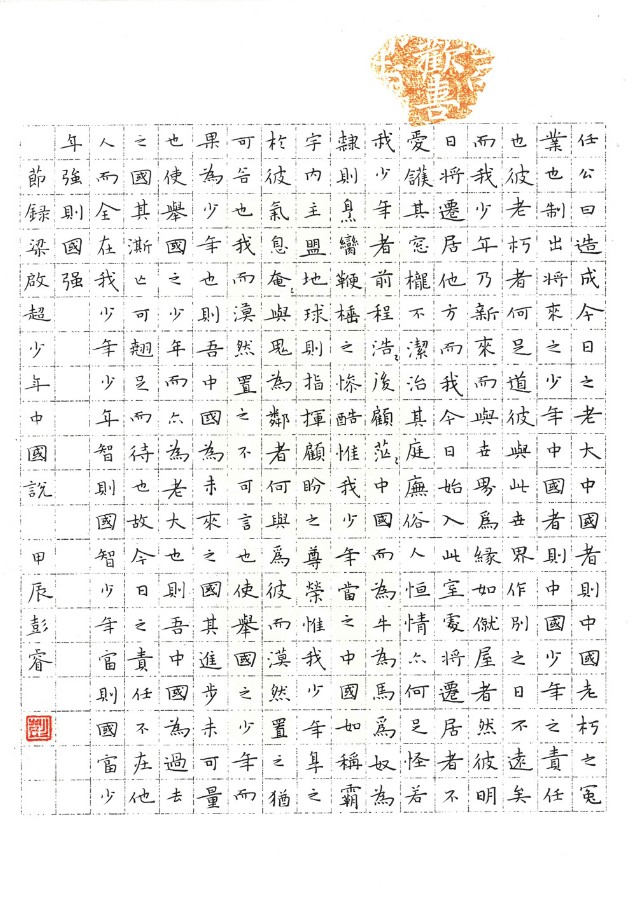 任公曰造成今日之老大中國者則中國老朽之冤
業也制出將來之少年中國者則中國少年之責任
也彼老朽者何足道彼與此世界作別之日不遠矣
而我少年乃新來而與世界爲緣如僦屋者然彼明
日將遷居他方而我今日始入此室處將遷居者不
愛護其窓櫳不潔治其庭廡俗人恒情亦何足怪若
我少年者前程浩々後顧茫々中國而為牛為馬爲奴為
隸則烹臠鞭棰之慘酷惟我少年當之中國如稱霸
宇內主盟地球則指揮顧盼之尊榮惟我少年享之
於彼氣息奄々與鬼為鄰者何與焉彼而漠然置之猶
可言也我而漠然置之不可言也使舉國之少年而
果為少年也則吾中國為未來之國其進步未可量
也使舉國之少年而亦為老大也則吾中國為過去
之國其澌亡可翹足而待也故今日之責任不在他
人而全在我少年少年智則國智少年富則國富少
年強則國強
節録梁啟超少年中國說 甲辰彭睿
彭